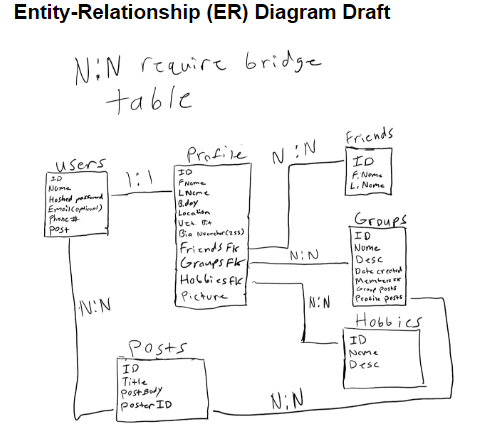 Entity-Relationship (ER) Diagram Draft
N:N require bridge
table
Users
ID
Name
Hashed password
Email(optional)
Phone #
Post
1:1
Profile
ID
F Name
L Name
B.day
Location
Bio Nvarchar(255)
Friends FK
Groups FK
Hobbies FK
Picture
N:N
Friends
ID
F. Name
L. Name
N:N
Groups
ID
Name
Desc
Date created
Members FK
Group posts
Profile posts
N:N
Hobbies
ID
Name
Desc
N:N
Posts
ID
Title
Post Body
Poster ID
N:N